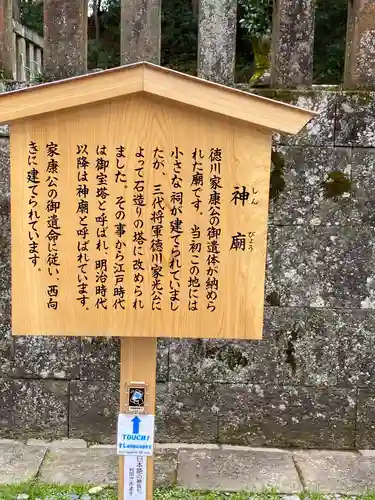 神廟
しん
びょう
徳川家康公の御遺体が納めら
れた廟です。当初この地には
小さな祠が建てられていまし
たが、三代将軍徳川家光公に
よって石造りの塔に改められ
ました。その事から江戸時代
は御宝塔と呼ばれ、明治時代
以降は神廟と呼ばれています。
家康公の御遺命に従い、西向
きに建てられています。
TOUCH!
Languages
日本語の説明